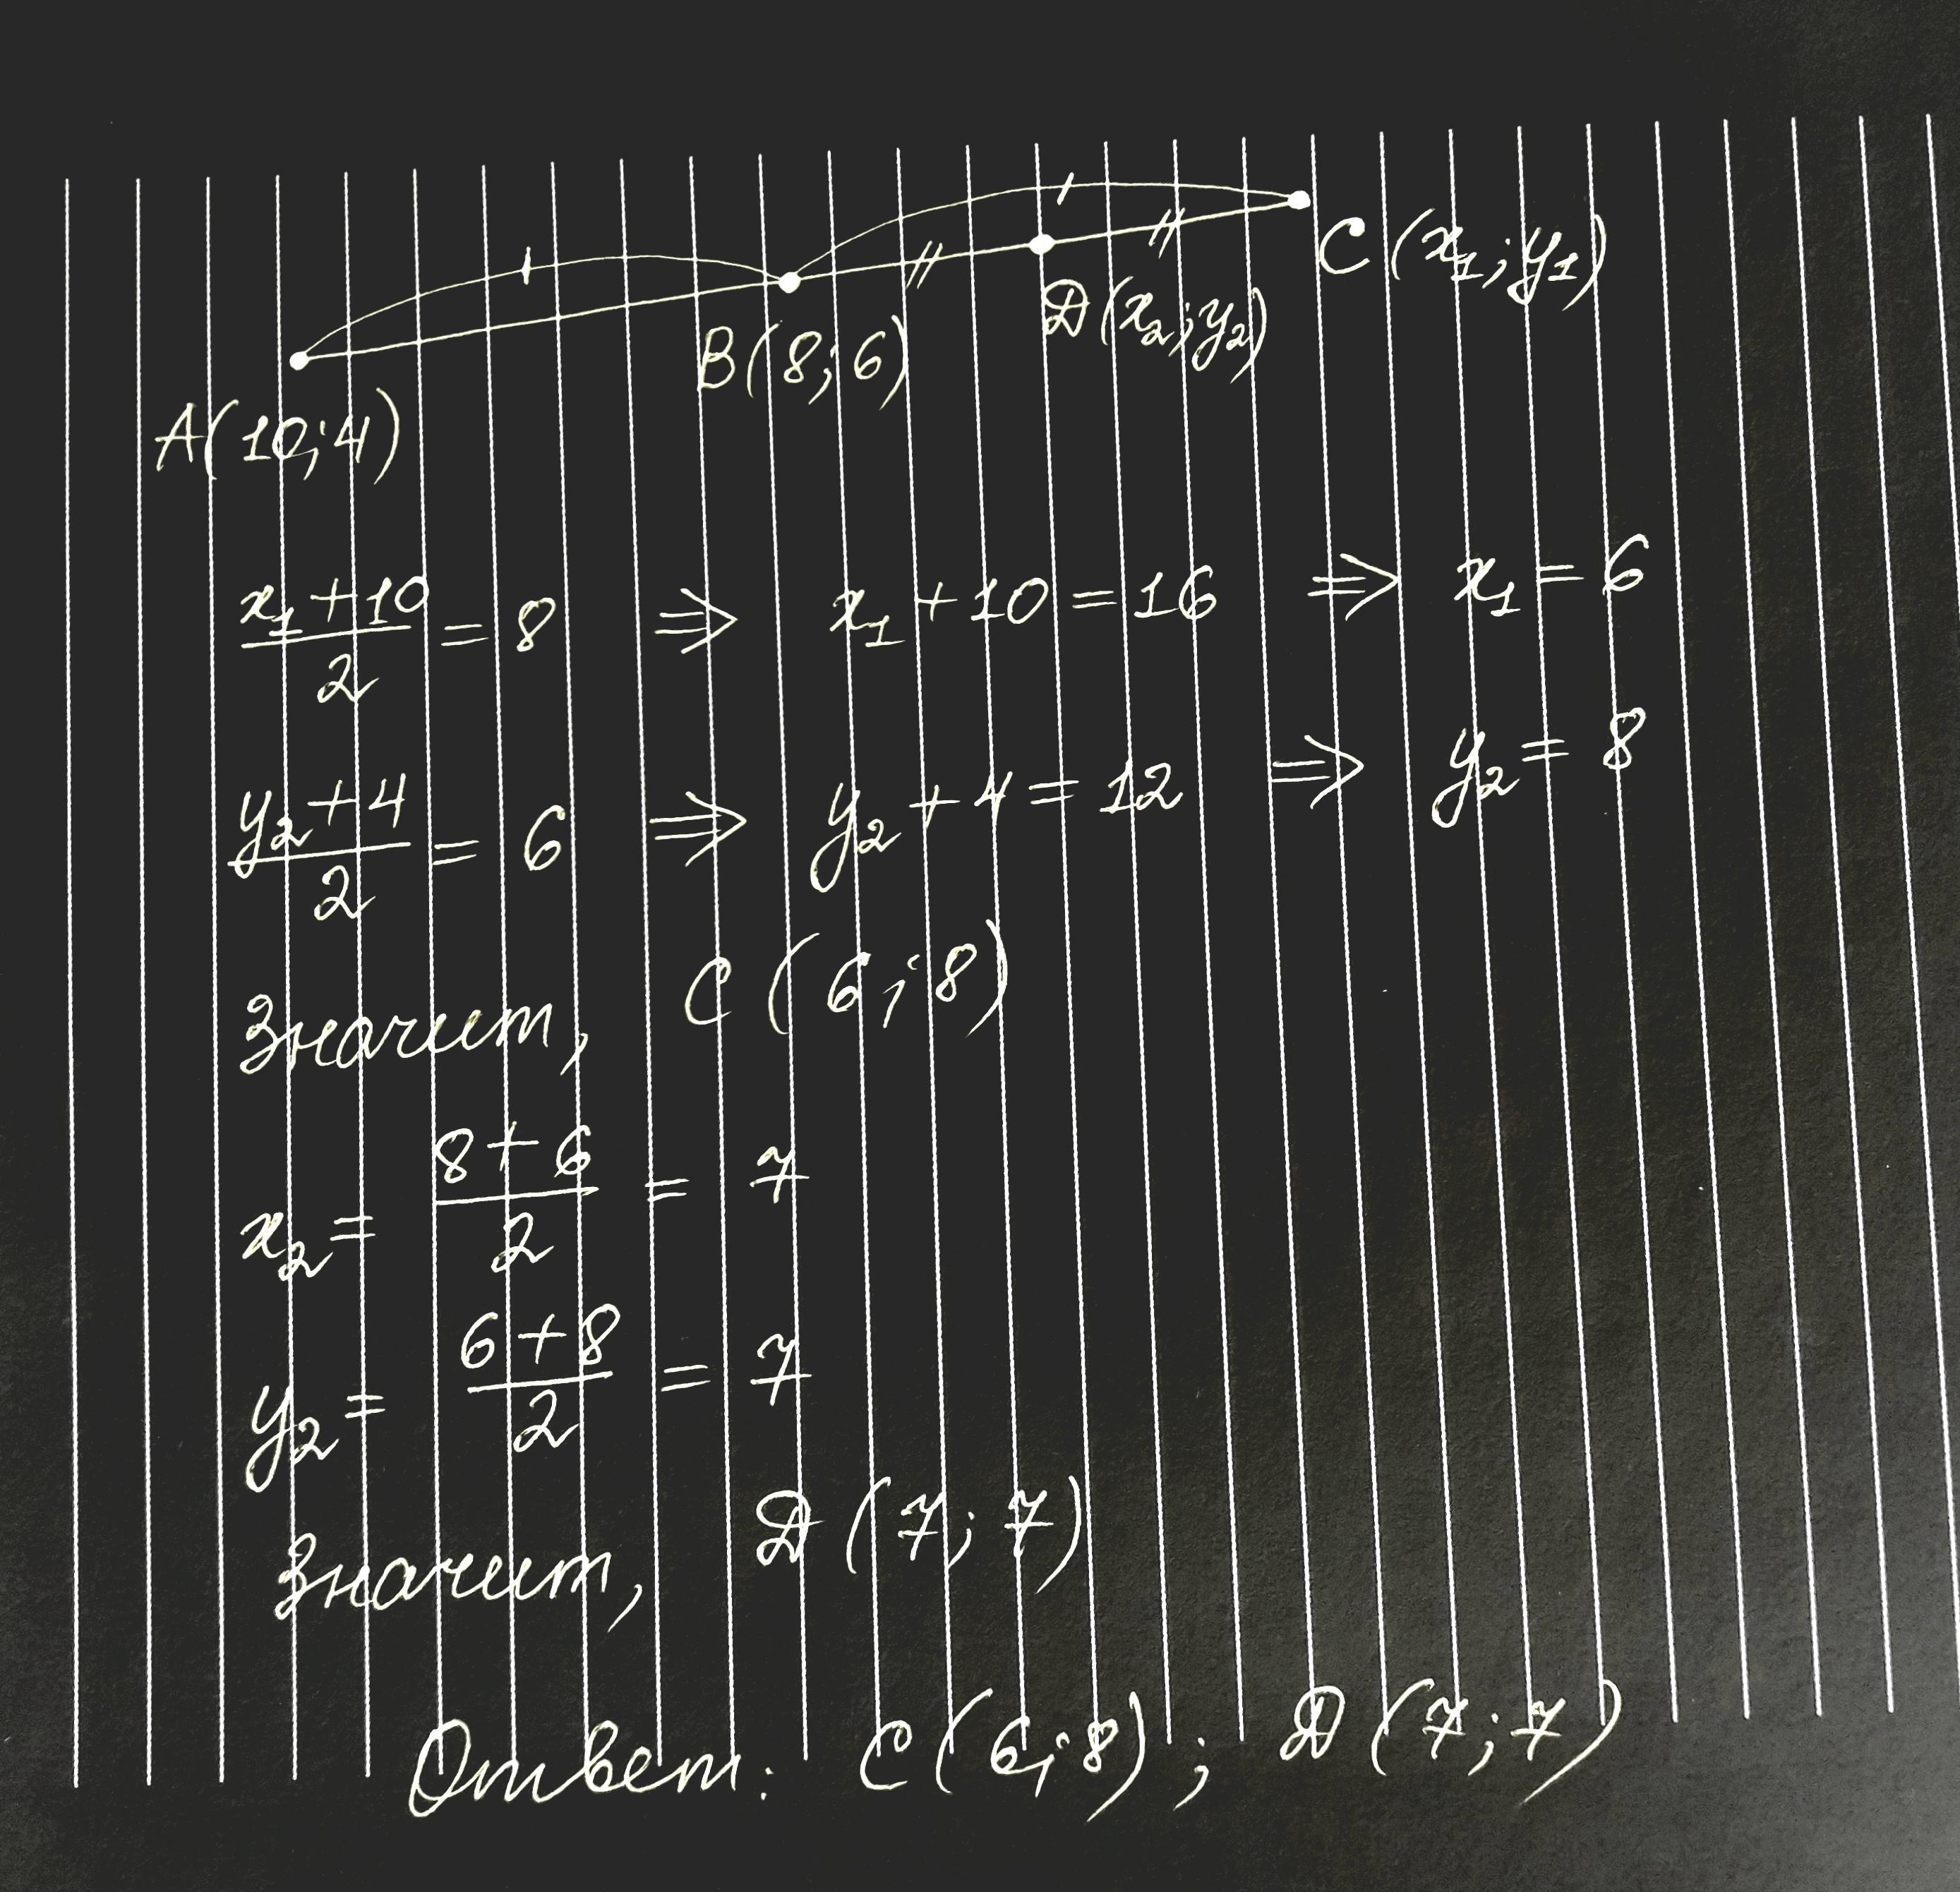 C(x₁; y₁)
D(x₂; y₂)
B(8; 6)
A(10; 4)
(x₁ + 10)/2 = 8 ⇒ x₁ + 10 = 16 ⇒ x₁ = 6
(y₂ + 4)/2 = 6 ⇒ y₂ + 4 = 12 ⇒ y₂ = 8
Значит, C(6; 8)
x₂ = (8 + 6)/2 = 7
y₂ = (6 + 8)/2 = 7
Значит, D(7; 7)
Ответ: C(6; 8); D(7; 7)